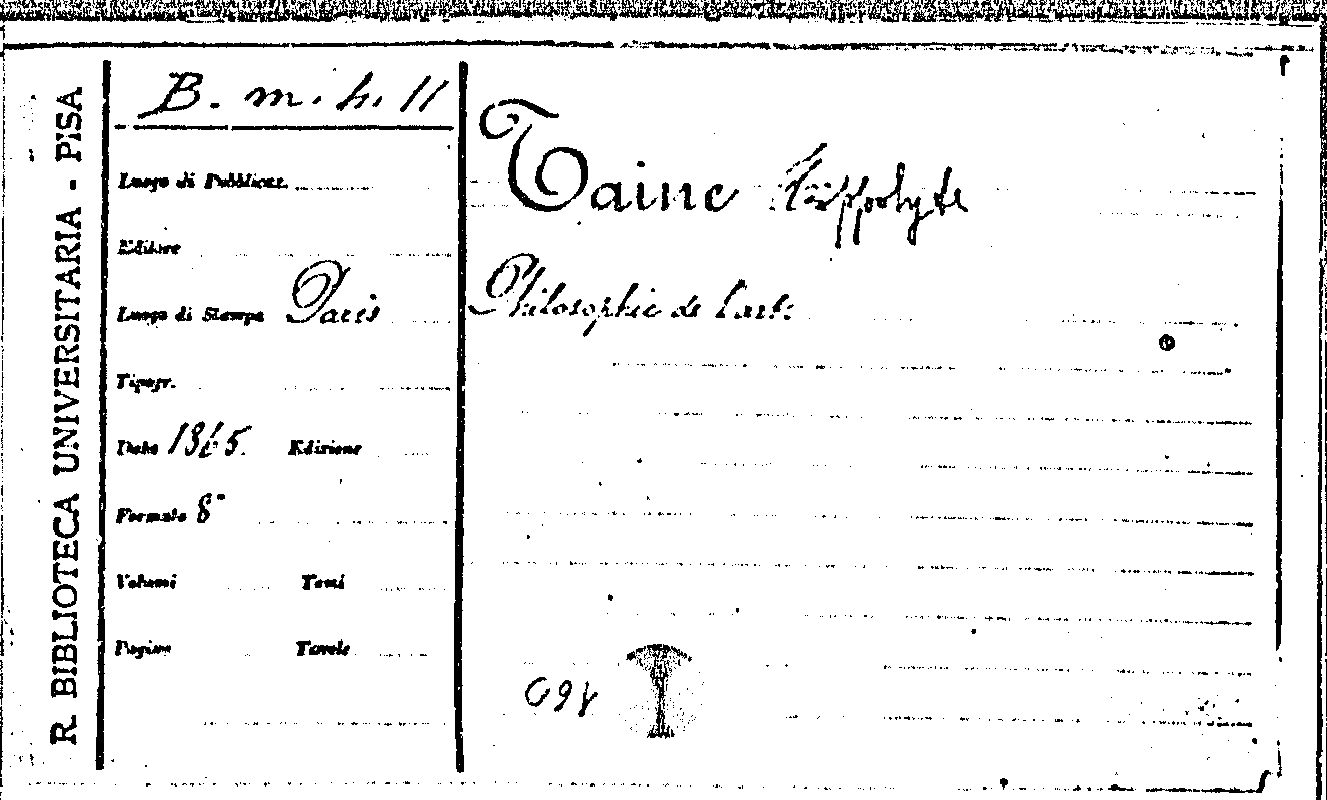 R. BIBLIOTECA UNIVERSITARIA - PISA
B. m. h. 11
Luogo di Pubblicaz.
Editore
Luogo di Stampa Paris
Tipogr.
Data 1865. Edizione
Formato 8°
Volumi Tomi
Pagine Tavole
Taine Hippolyte
Philosophie de l'art.